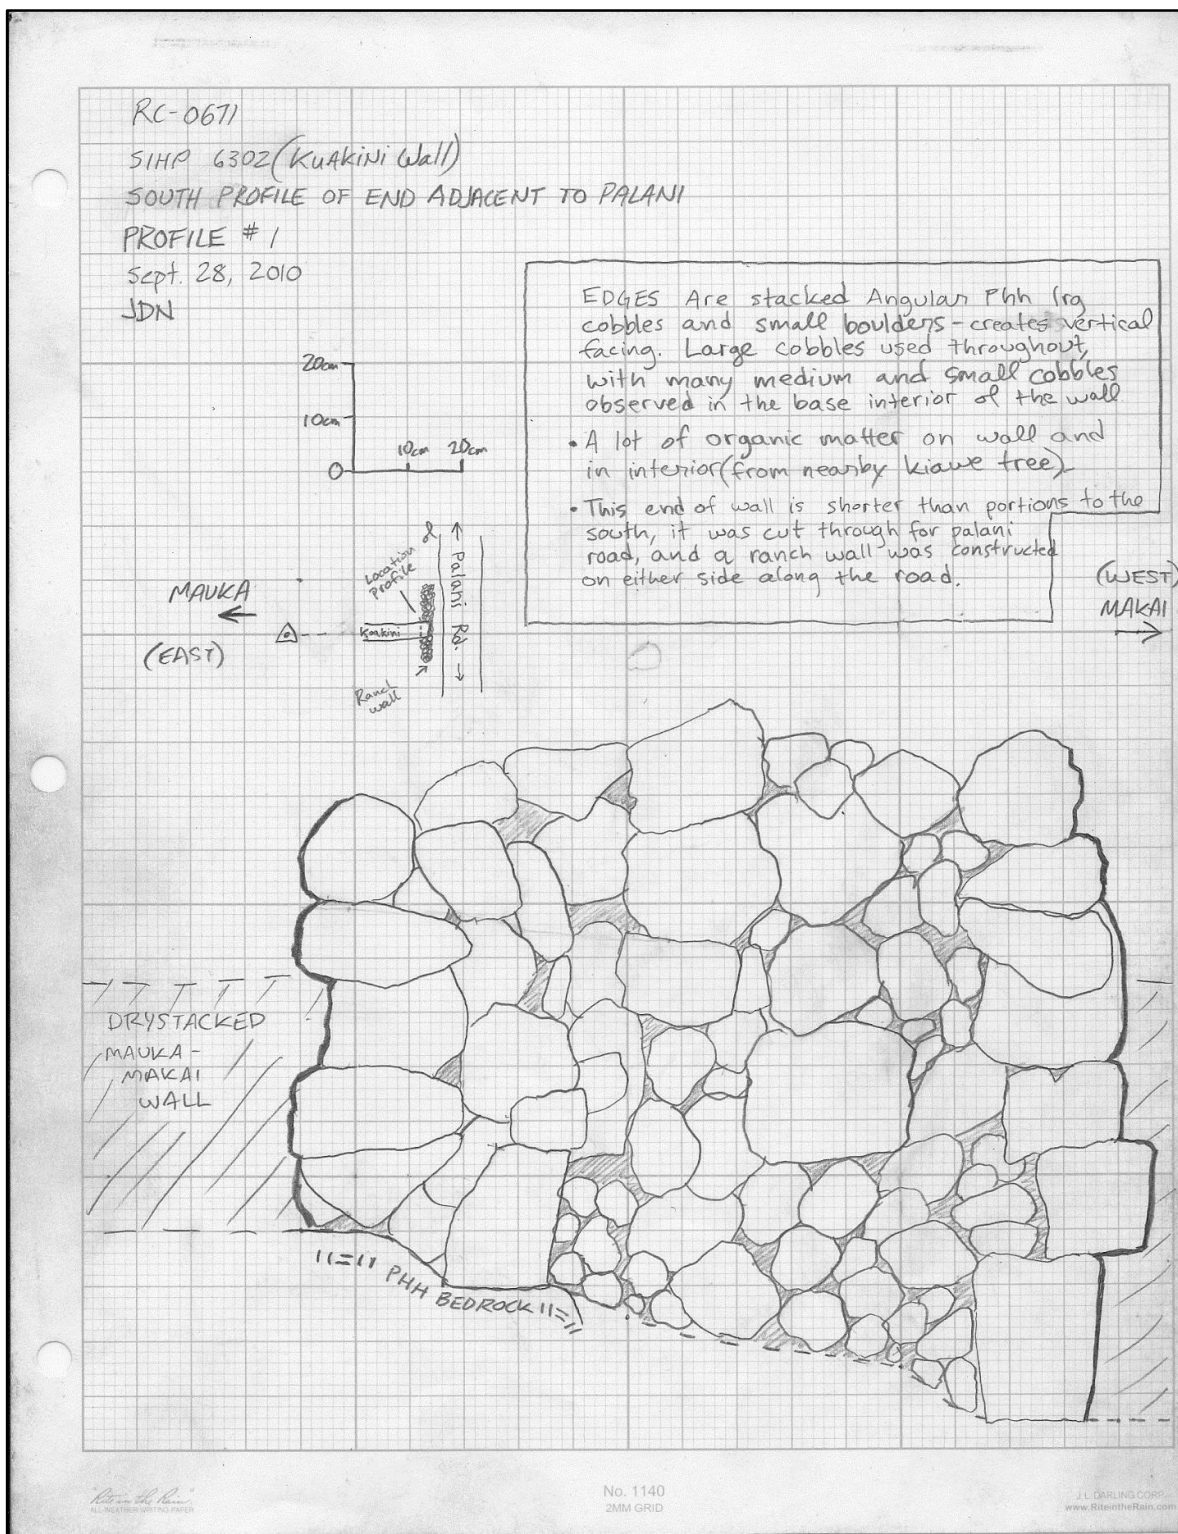 RC-0671
SIHP 6302 (KUAKINI Wall)
SOUTH PROFILE OF END ADJACENT TO PALANI
PROFILE # 1
Sept. 28, 2010
JDN
EDGES Are stacked Angular Phh lrg
cobbles and small boulders - creates vertical
facing. Large cobbles used throughout,
with many medium and small cobbles
observed in the base interior of the wall
• A lot of organic matter on wall and
in interior (from nearby kiawe tree)
• This end of wall is shorter than portions to the
south, it was cut through for palani
road, and a ranch wall was constructed
on either side along the road.
20cm
10cm
0
10cm 20cm
Location of
Profile
Palani Rd.
Kuakini
Ranch
wall
MAUKA
(EAST)
(WEST)
MAKAI
DRYSTACKED
MAUKA-
MAKAI
WALL
PHH BEDROCK
"Rite in the Rain"
ALL-WEATHER WRITING PAPER
No. 1140
2MM GRID
J. L. DARLING CORP.
www.RiteintheRain.com